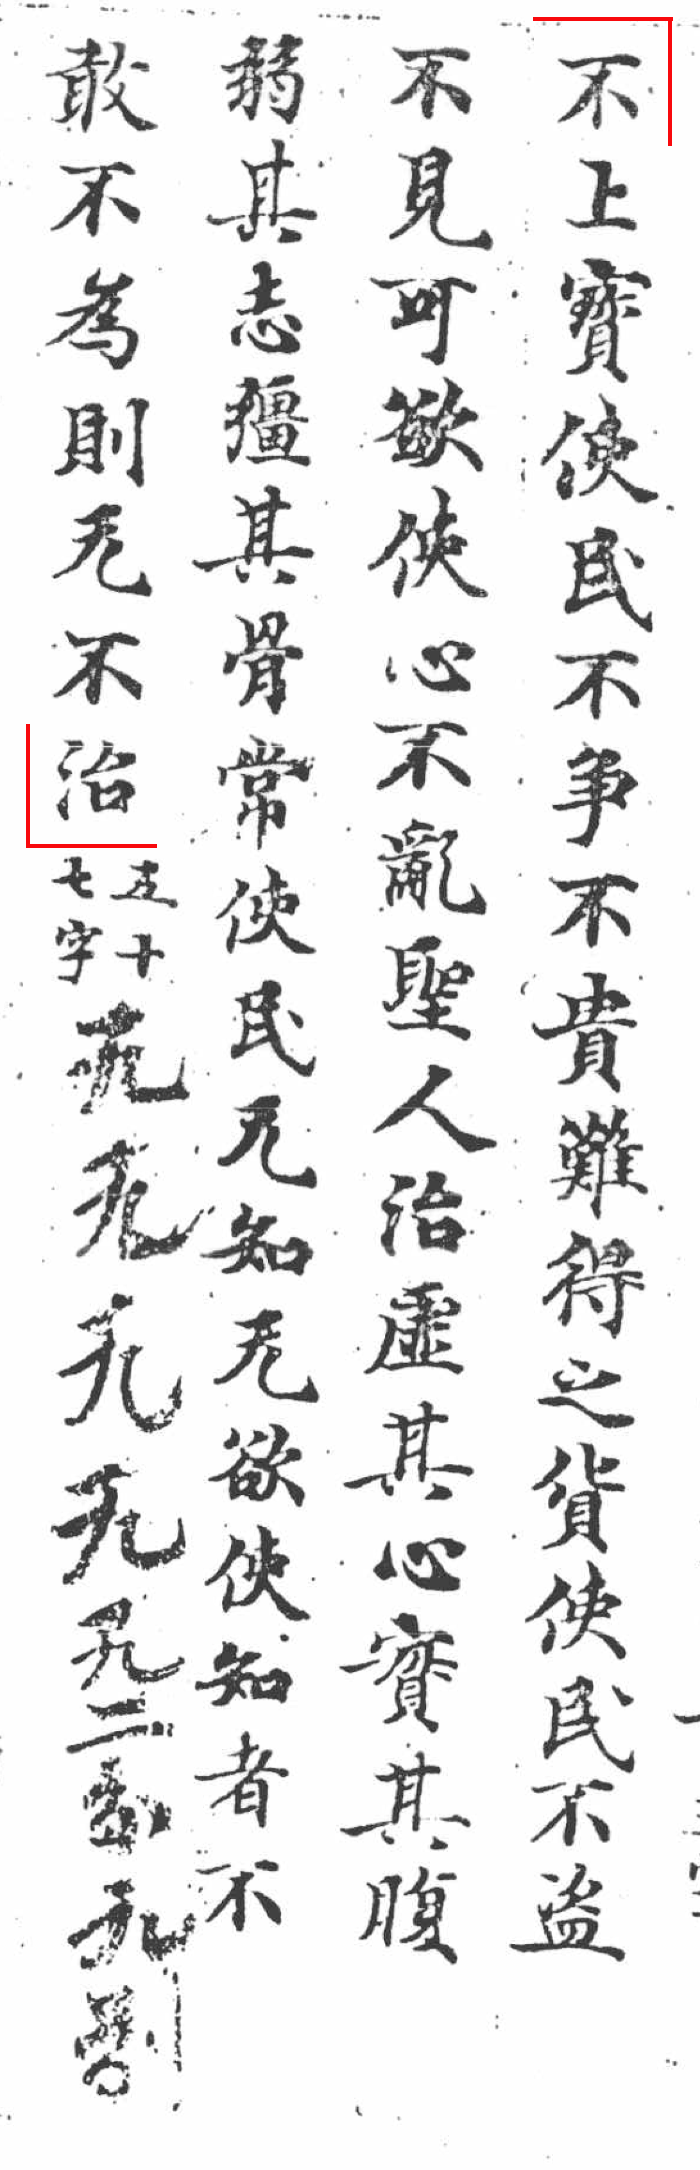 不上寳使民不争不貴難得之貨使民不盗
不見可欲使心不亂聖人治虛其心實其腹
弱其志彊其骨常使民无知无欲使知者不
敢不為則无不治五十七字无无无无无二